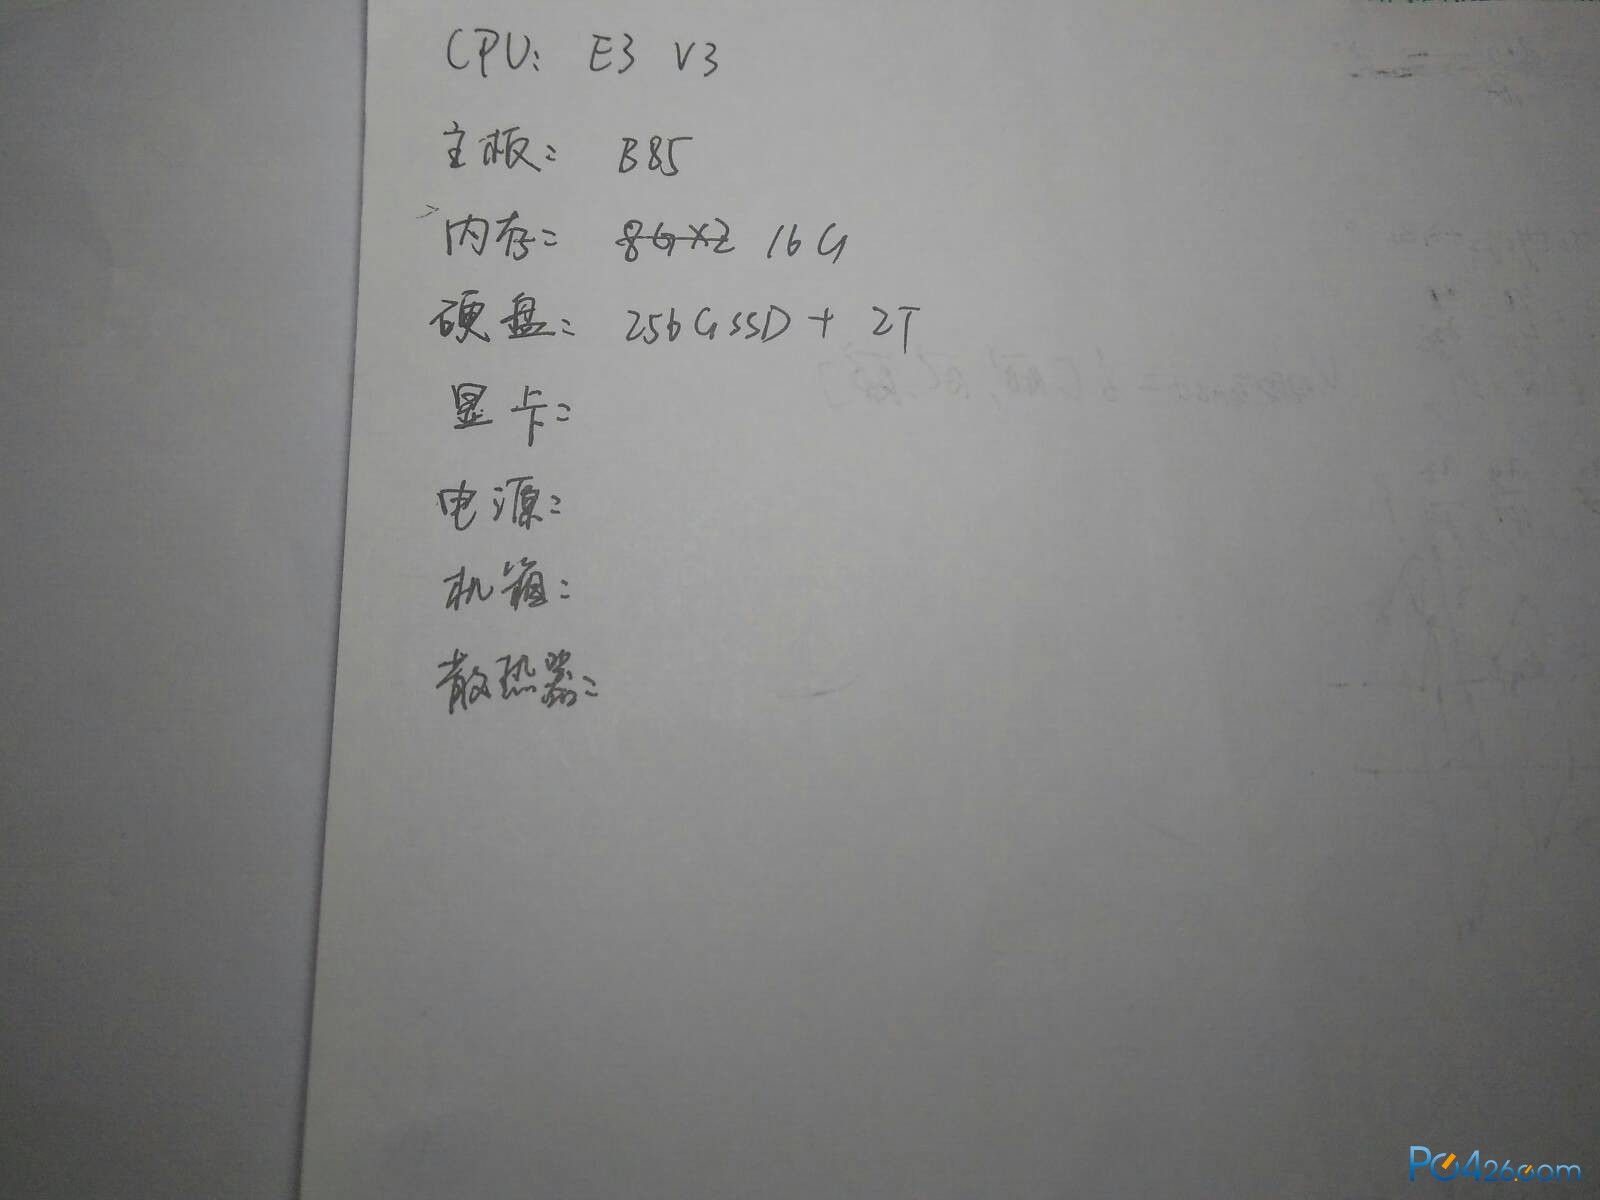 CPU: E3 V3
主板: B85
内存: 8G×2 16G
硬盘: 256GSSD + 2T
显卡:
电源:
机箱:
散热器:
PC426.com